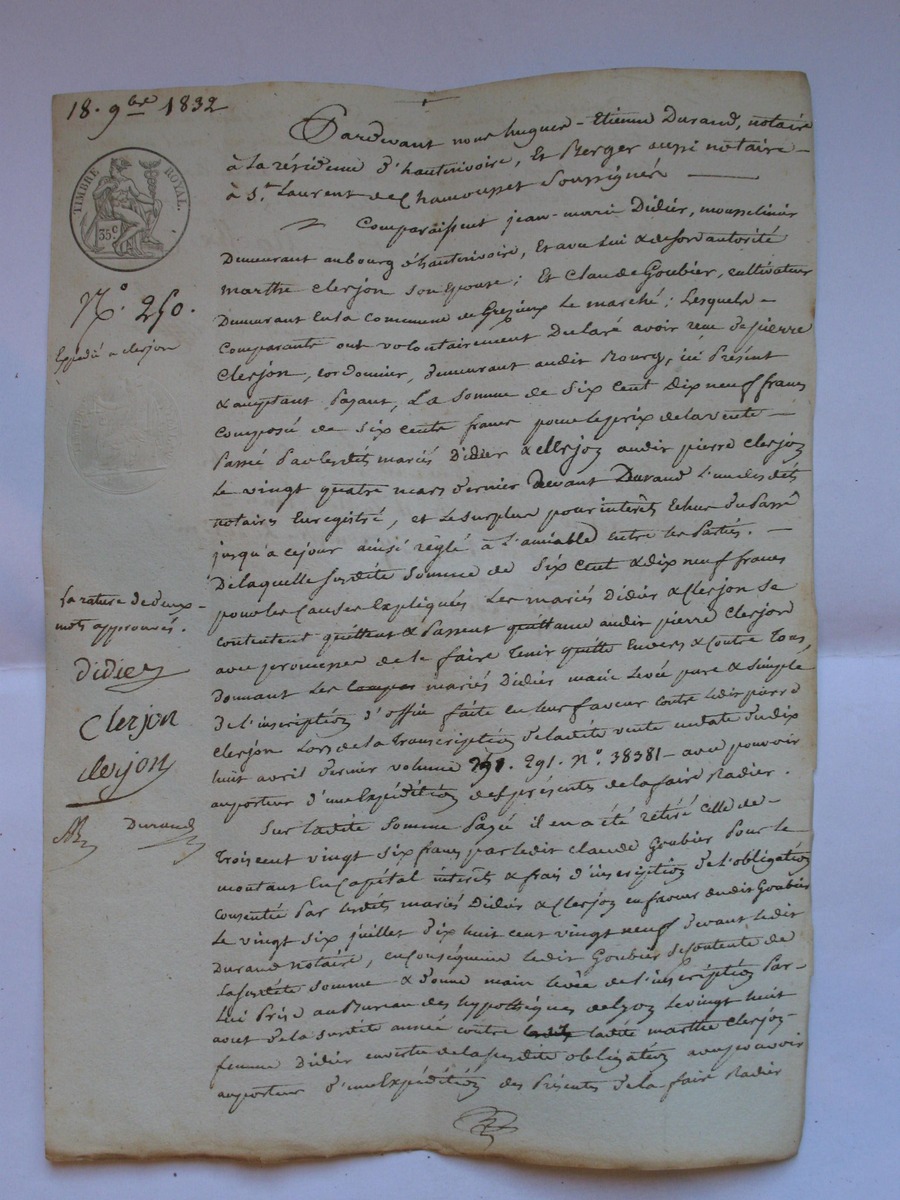 18. 9bre 1832
TIMBRE ROYAL.
35c
N° 250.
Expédié a clerjon
Pardevant nous hugues-Etienne Durand, notaire
à la résidence d'hauterivoire, et Berger aussi notaire
à St Laurent de Chamousset Soussignés
Comparaissent jean-marie Didier, mousselinier
Demeurant au bourg d'hauterivoire, et avec lui & de son autorité
marthe clerjon son epouse; et Claude Goubier, cultivateur
Demeurant en la commune de Grezieux le marché; Lesquels
Comparants ont volontairement Déclaré avoir reçu de pierre
Clerjon, cordonnier, demeurant audit Bourg, ici Présent
& acceptant Payant, La somme de Six Cent Dix neuf francs
Composé de Six cents francs pour le prix de la vente
Passée Par lesdits mariés Didier & Clerjon audit pierre Clerjon
Le vingt quatre mars dernier devant Durand l'un desdits
notaires Enregistré, et le surplus pour intérêts Echus du Passé
jusqu'a ce jour ainsi réglé à l'amiable entre les Parties.
De laquelle susdite Somme de Six Cent & dix neuf francs
pour les Causes Expliquées Les mariés Didier & Clerjon se
contentent quittent & Passent quittance audit pierre Clerjon
avec promesse de le faire tenir quitte Envers & contre tous,
Donnant les mariés Didier main levée pure & simple
de l'inscription d'office faite en leur faveur contre ledit pierre
Clerjon Lors de la transcription de ladite vente en date du dix
huit avril dernier volume 291. N° 38381 - avec pouvoir
au porteur d'une Expédition des présentes de la faire Radier.
Sur ladite somme Payée il en a été retiré celle de
trois cent vingt six francs par ledit Claude Goubier Pour le
montant En Capital intérêts & frais d'inscription de l'obligation
consentie Par lesdits mariés Didier & Clerjon en faveur dudit Goubier
Le vingt six juillet dix huit cent vingt neuf devant ledit
Durand notaire, en conséquence ledit Goubier se contente de
la susdite somme & donne main levée de l'inscription Par
Lui Prise au Bureau des hypothèques de lyon le vingt huit
aout de la susdite année contre ladite marthe Clerjon
femme Didier en vertu de la susdite obligation avec pouvoir
au porteur d'une Expédition des Présentes de la faire Radier
La rature de deux
mots approuvés.
Didier
Clerjon
clerjon
Durand